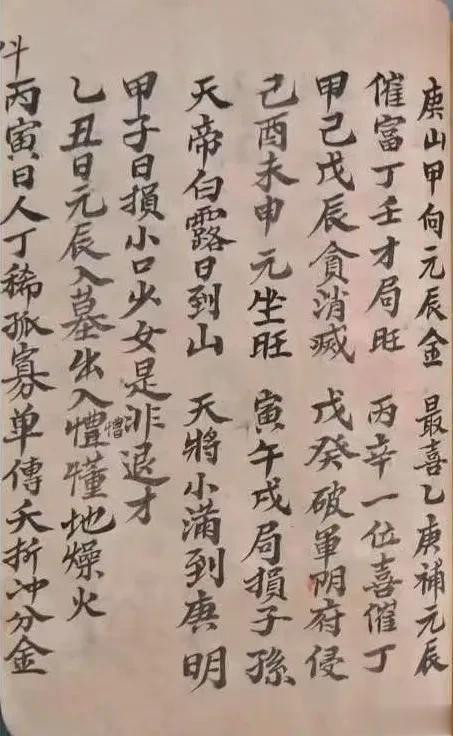 庚山甲向元辰金　最喜乙庚補元辰
催富丁壬才局旺　丙辛一位喜催丁
甲己戊辰貪消滅　戊癸破軍阴府侵
己酉未申元坐旺　寅午戌局損子孫
天帝白露日到山　天將小满到庚明
甲子日損小口少女是非退才
乙丑日元辰入墓出入懵懂地燥火
丙寅日人丁稀孤寡单傳夭折冲分金